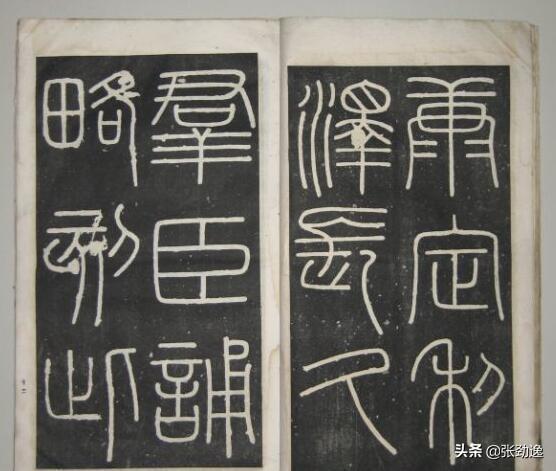 康定利
澤長久
羣臣誦
略刻此
头条 @张劲逸